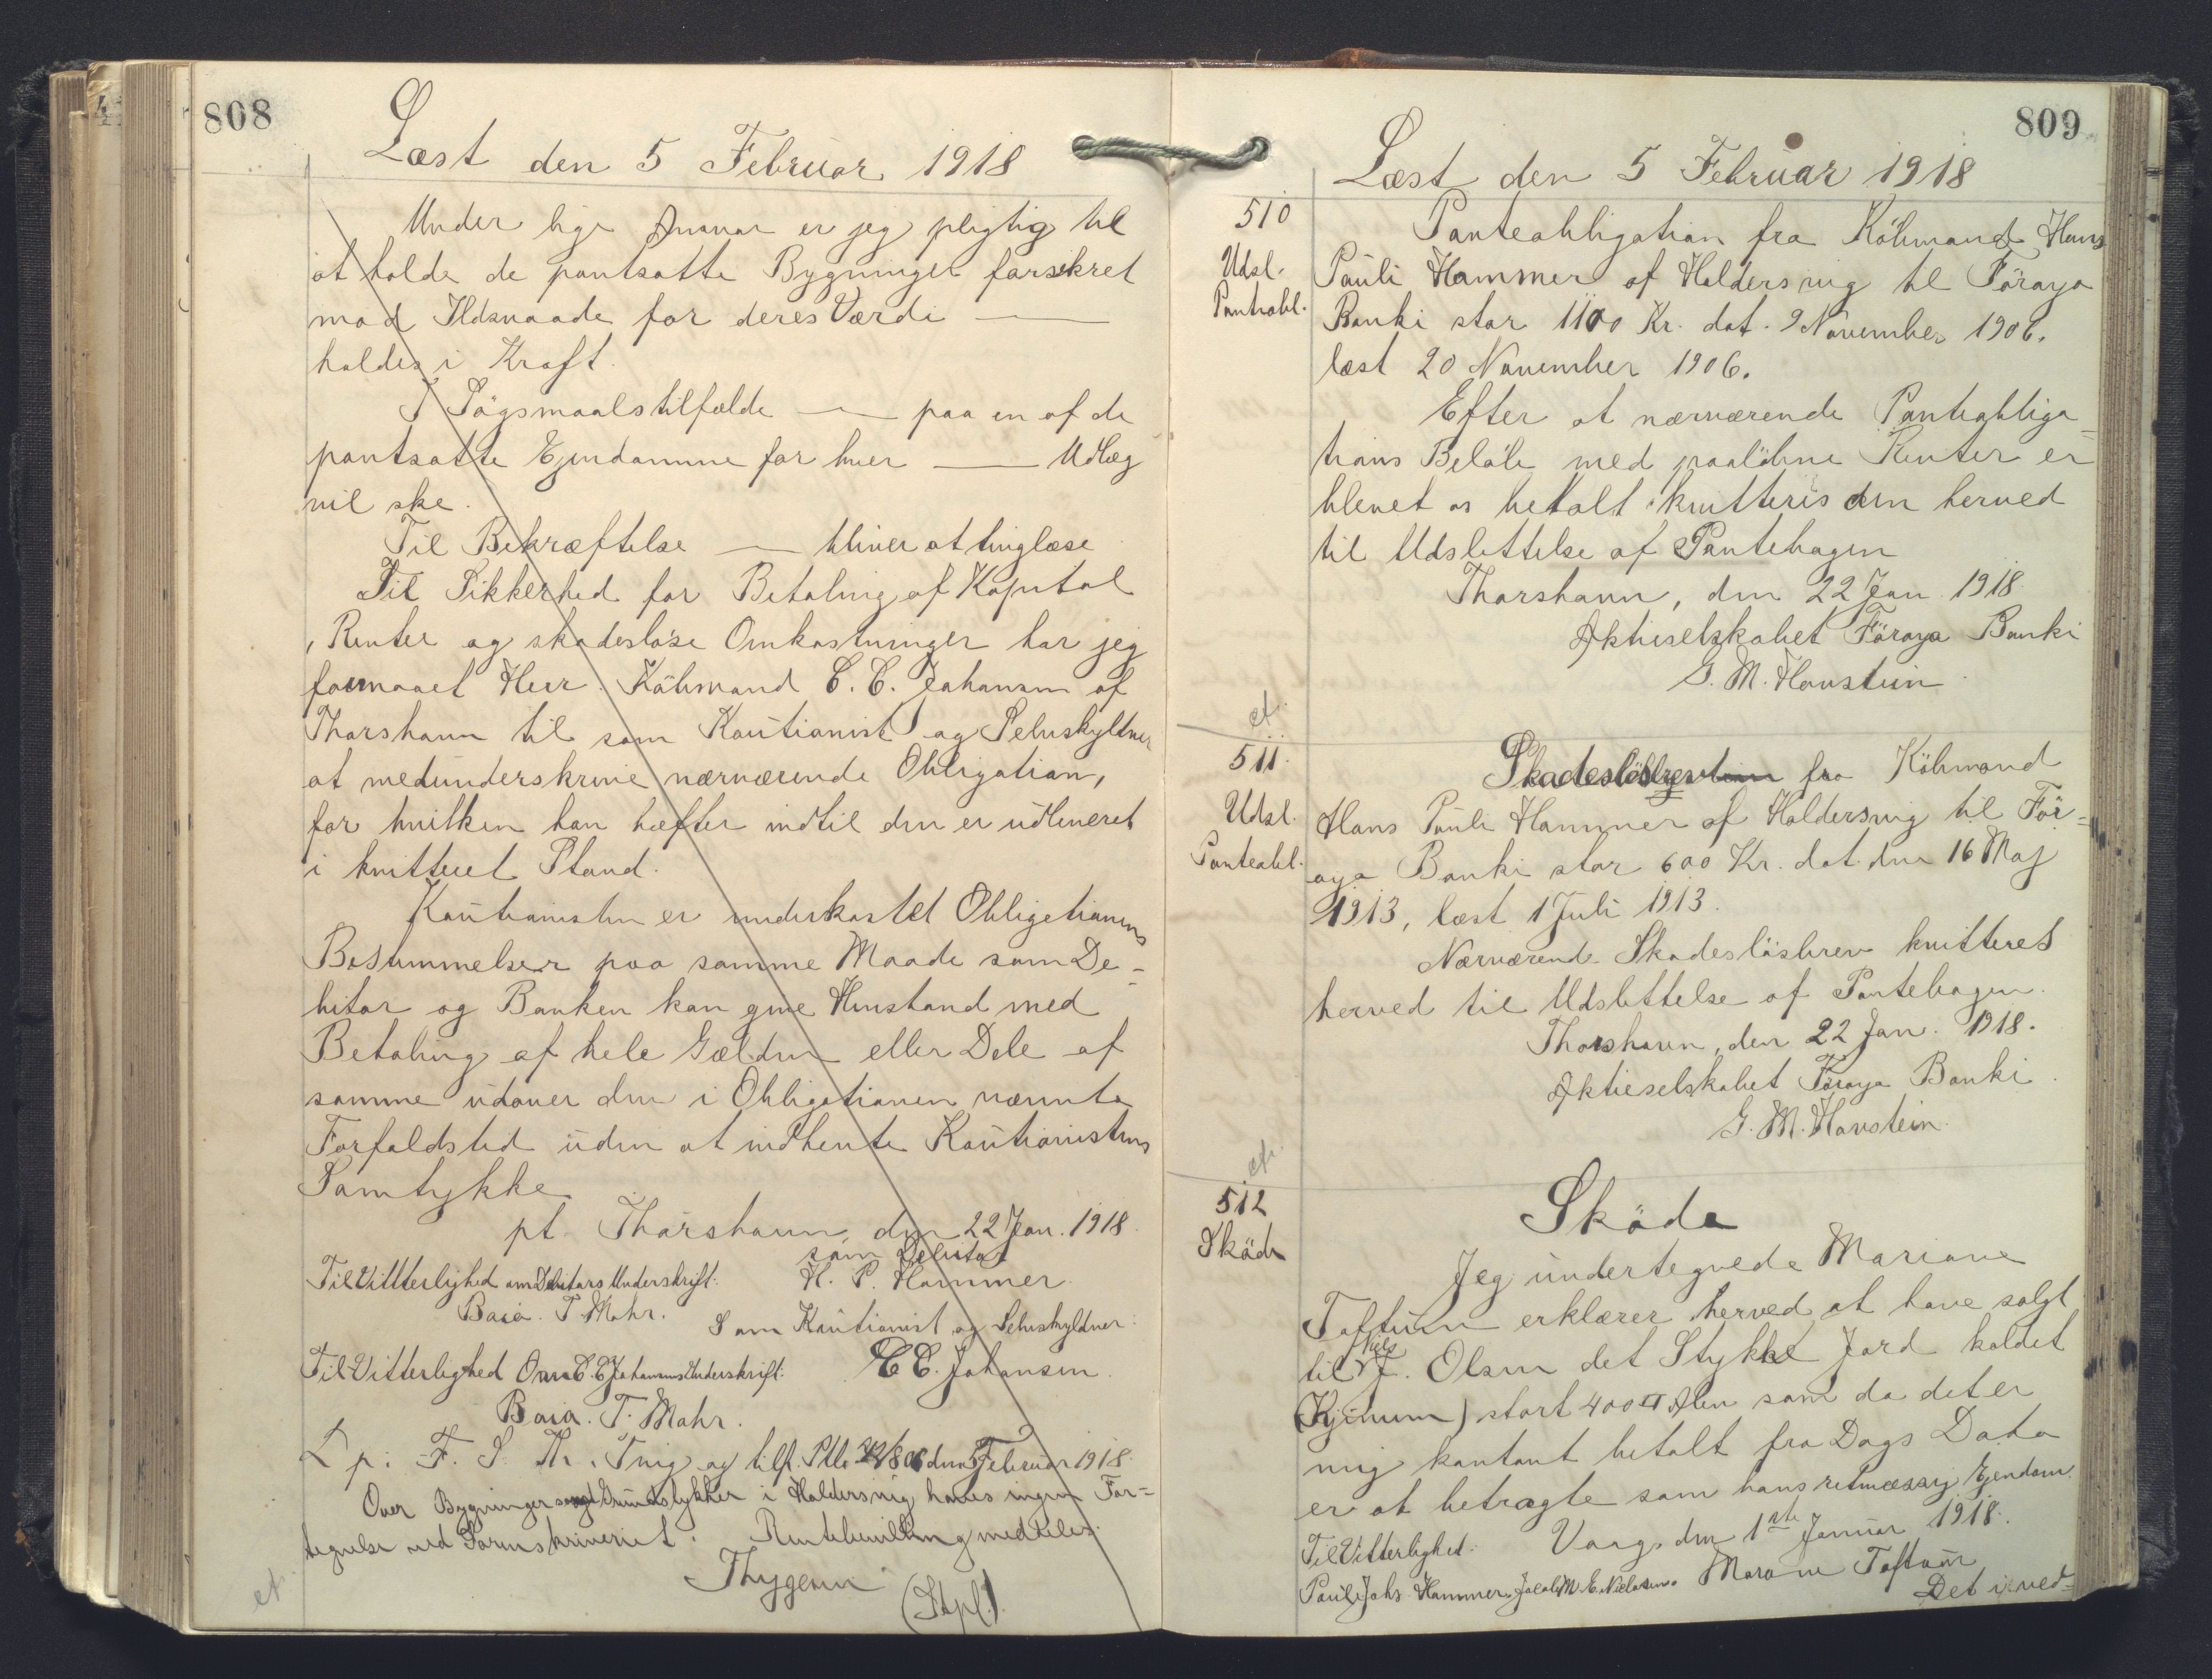 808
Læst den 5 Februar 1918
Under lige Ansvar er jeg pligtig til
at holde de pantsatte Bygninger forsikret
mod Ildsvaade for deres Værdi —
holdes i Kraft.
I Søgsmaalstilfælde — paa en af de
pantsatte Ejendomme for hver — Udlæg
vil ske.
Til Bekræftelse — bliver at tinglæse
Til Sikkerhed for Betaling af Kapital
, Renter og skadesløse Omkostninger har jeg
formaaet Herr. Købmand C. C. Johansen af
Thorshavn til som Kautionist og Selvskyldner
at medunderskrive nærværende Obligation,
for hvilken han hæfter indtil den er udleveret
i kvitteret Stand.
Kautionisten er underkastet Obligationens
Bestemmelser paa samme Maade som De-
bitor og Banken kan give Henstand med
Betaling af hele Gælden eller Dele af
samme udover den i Obligationen nævnte
Forfaldstid uden at indhente Kautionistens
Samtykke
pt. Thorshavn, den 22 Jan. 1918.
som Debitor
Til Vitterlighed om Debitors Underskrift: H. P. Hammer.
Baia. T. Mohr. Som Kautionist og Selvskyldner:
Til Vitterlighed Om C. C. Johansens Underskrift: C C. Johansen.
Baia. T. Mohr.
L p. F. S. Th. Ting og tilf. Ptb. 808 den 5 Februar 1918.
Over Bygninger Grundstykker i Haldersvig haves ingen For-
tegnelse ved Sorenskriveriet. Rentebevilling meddeles.
Thygesen
(Stpl.)
cf.
809
Læst den 5 Februar 1918
510
Udsl.
Panteobl.
Panteobligation fra Köbmand Hans
Pauli Hammer af Haldersvig til Föroya
Banki stor 1100 Kr. dat. 9 November 1906.
læst 20 November 1906.
Efter at nærværende Panteobliga-
tions Beløb med paaløbne Renter er
blevet os betalt kvitteres den herved
til Udslettelse af Pantebogen
Thorshavn, den 22 Jan 1918.
Aktieselskabet Föroya Banki
G. M. Hovstein
cf.
511.
Udsl.
Panteobl.
Skadesløsbrev fra Köbmand
Hans Pauli Hammer af Haldersvig til För-
oya Banki stor 600 Kr. dat. den 16 Maj
1913, læst 1 Juli 1913.
Nærværende Skadesløsbrev kvitteres
herved til Udslettelse af Pantebogen.
Thorshavn, den 22 Jan. 1918.
Aktieselskabet Föroya Banki.
G. M. Hovstein.
cfr.
512
Sköde
Sköde
Jeg undertegnede Mariane
Toftum erklærer herved at have solgt
til Niels J. Olsen det Stykke Jord kaldet
(Kjinum) stort 400 □ Alen som da det er
mig kontant betalt fra Dags Dato
er at betragte som hans retmæssig Ejendom.
Til Vitterlighet: Vaag, den 1ste Januar 1918.
Paul Johs Hammer, Jacob M. E. Nielsen. Mariane Toftum
Det ved-